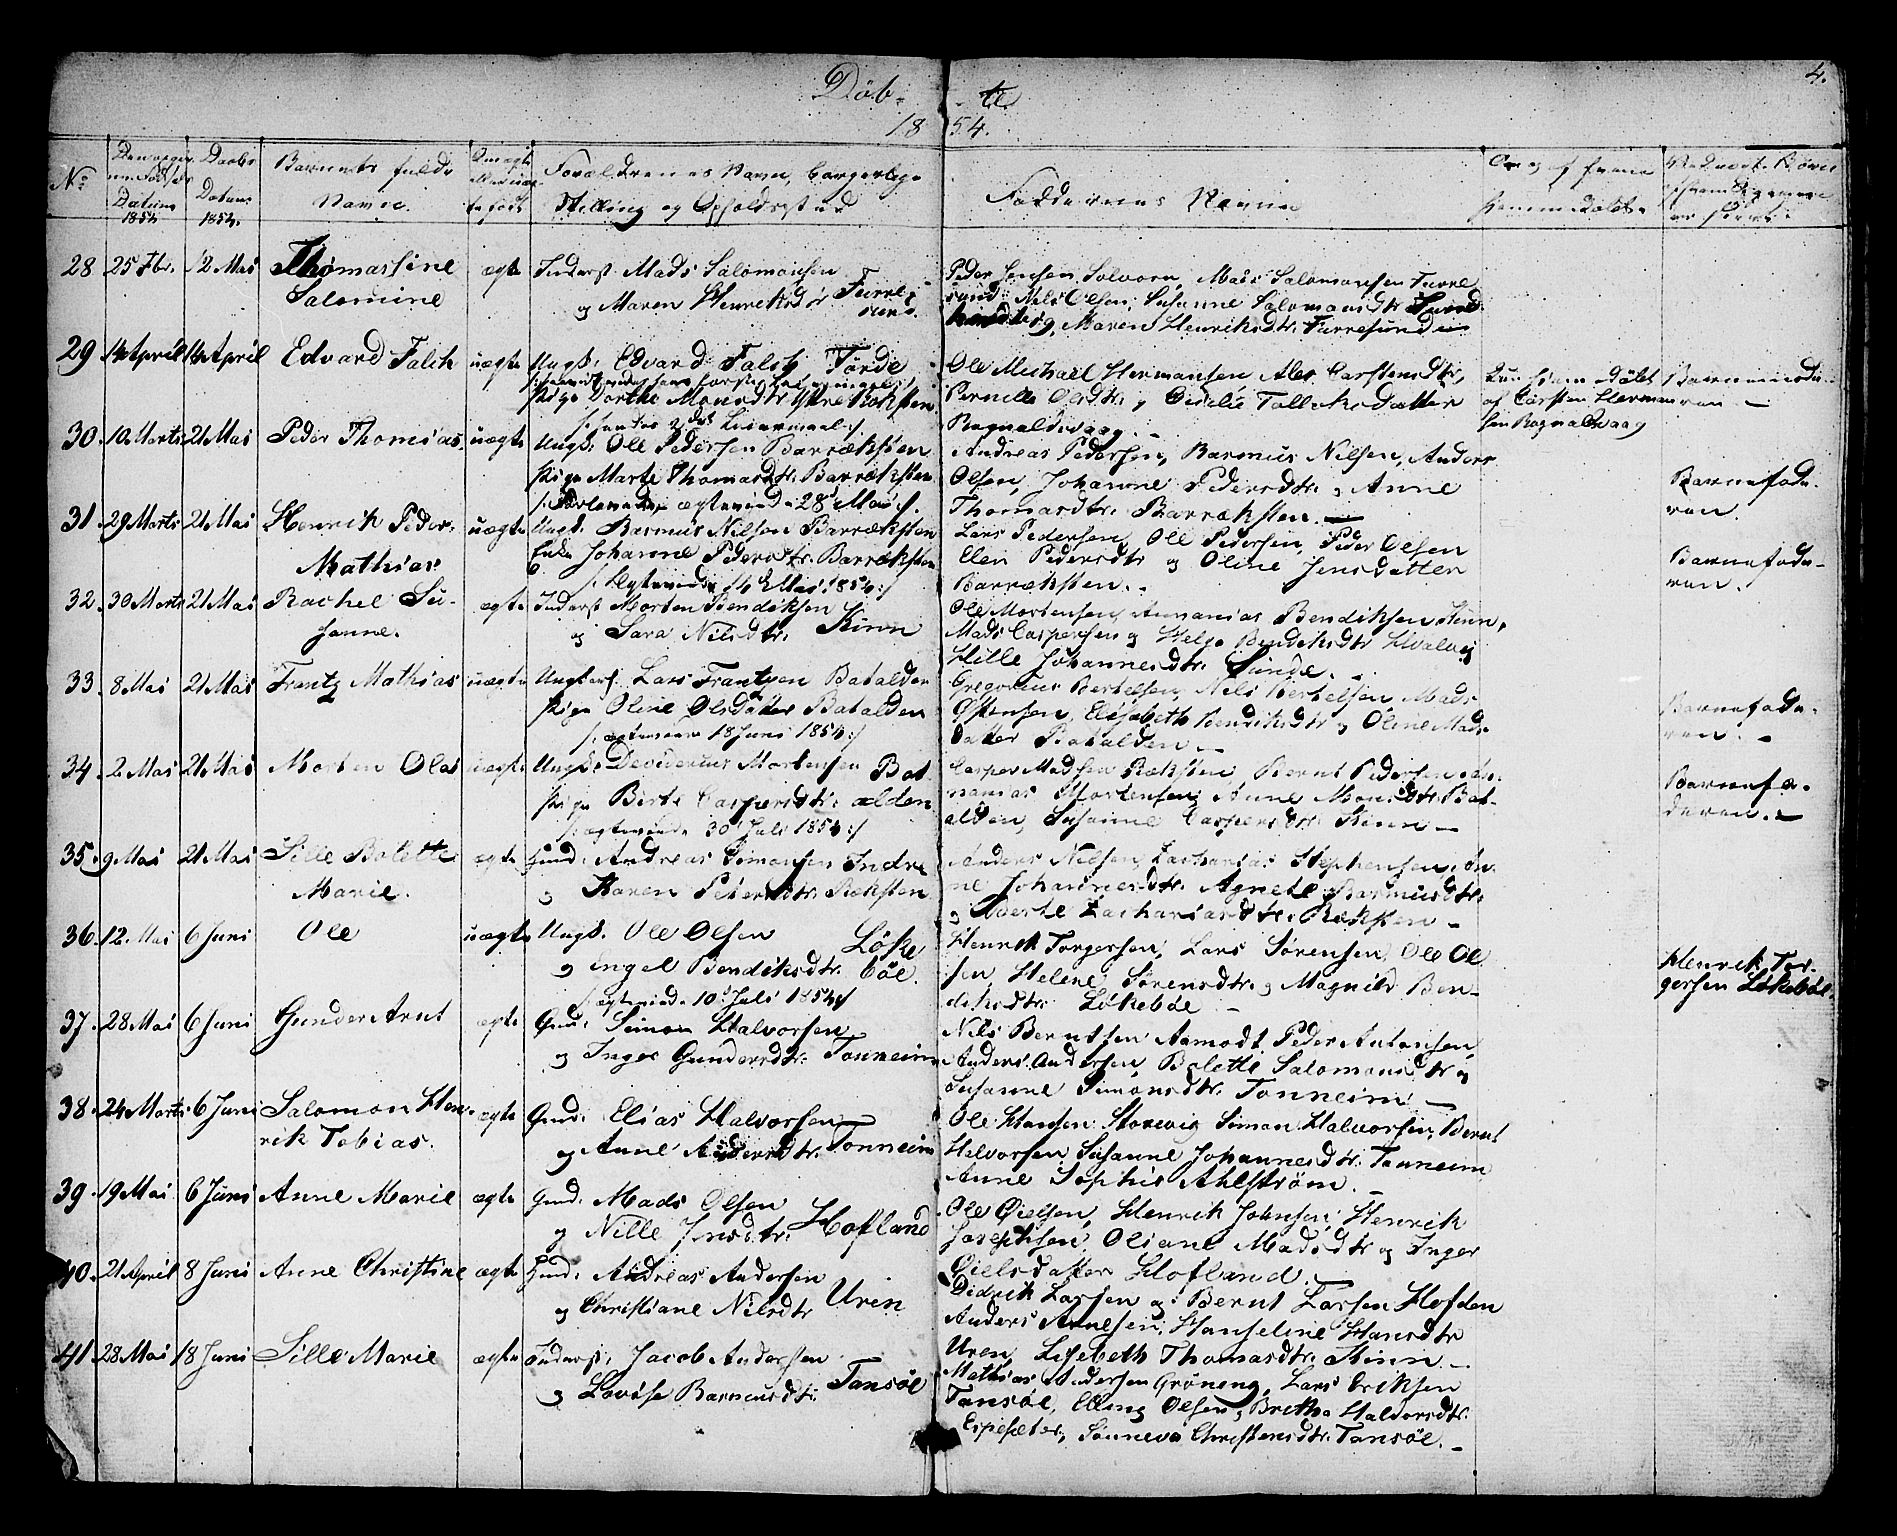 Døb- te
18 54.
4.
No
Den opgivne Fødsels Datum 1854
Daabs Datum 1854.
Barnets fulde Navn.
Om ægte eller uægte født
Forældrenes Navn, borgerlige Stilling og Opholdssted
Faddernes Navne
Om og af hvem hjemmedøbt.
28 25 Fbr. 12 Mai Thomasine Salomine ægte Inderst Mads Salomonsen
og Maren Henriksdtr Furresund.
Peder Jensen Solvorn, Mads Salomonsen Furre
sund Nils Olsen, Susanne Salomonsdtr
og Maren Henriksdtr. Furresund
29 14 April 14 April Edvard Falch uægte Ungk. Edvard Falch Førde
Pige Dorthe Monsdtr Yttre Rœksten
Ole Michael Hermansen Ales Carstensdtr,
Pernille Olsdtr. og Cicelie Tolleksdatter
Rognaldsvaag. -
Hjemmedøbt
af Carsten Herman
sen Rognaldsvaag
Barnemoderen -
30. 10 Marts 21 Mai Peder Thomas. uægte Ungk: Ole Pedersen Barrœksten
Pige Marte Thomasdtr. Barrœksten
Andreas Pedersen, Rasmus Nilsen, Anders
Olsen, Johanne Pedersdtr. og Anne
Thomasdtr. Barrœksten. -
Barnefaderen.
31. 29 Marts 21 Mai Henrik Peder Mathias uægte Ungk. Rasmus Nilsen Barrœksten
Enke Johanne Pedersdtr. Barrœksten
/: Ægteviede 14 Mai 1854 :/
Lars Pedersen, Ole Pedersen, Peder Olsen
Elen Pedersdtr og Oline Jensdatter
Barrœksten. -
Barnefaderen.
32. 30 Marts 21 Mai Rachel Susanne. ægte Inderst Morten Bendiksen
og Sara Nilsdtr. Kinn
Ole Mortensen, Annanias Bendiksen Kinn,
Mads Caspersen og Helge Bendiksdtr
Hille Johannesdtr. Sunde. -
33. 8 Mai 21 Mai Frantz Mathias uægte Ungkarl. Lars Frantzen Batalden
Pige Oline Olsdatter Batalden
/: ægteviede 18 Juni 1854 :/
Gregorius Bertelsen, Nils Bertelsen, Mads
Østensen, Elisabeth Henriksdtr og Oline Mads
datter Batalden -
Barnefaderen. -
34. 2 Mai 21 Mai Morten Olai uægte Ungk: Mortensen Bat-
Pige Birte Caspersdtr. alden
/: ægteviede 30 Juli 1854 :/
Casper Madsen Rœksten, Bernt Pedersen An-
nanias Mortensen, Anne Monsdtr. Bat-
alden, Susanne Caspersdtr. Kinn -
Barnefaderen. -
35. 9 Mai 21 Mai Sille Bolette Marie. ægte Gmd: Andreas Simonsen Indre
og Karen Petersdtr. Rœksten
Anders Nilsen, Zacharias Stephensen, An-
ne Johannesdtr. Agnete Rasmusdtr.
og Berte Zachariasdtr. Rœksten -
36. 12. Mai 6 Juni Ole uægte Ungk. Ole Olsen Løke
og Ingel Bendiksdtr. bøe.
/: ægteviede 10 Juli 1854 :/
Henrik Torgersen, Lars Sørensen, Ole Ol
sen Helene Sørensdtr. og Magnild Ben-
diksdtr. Løkebøe -
Henrik Tor-
gersen Løkebøe.
37. 28 Mai 6 Juni Gunder Arnt ægte Gmd: Simon Halvorsen
og Inger Gundersdtr. Tonneim
Nils Berntsen Aamodt, Peder Antonsen,
Anders Andersen, Bolette Salomonsdtr og
Susanne Simonsdtr. Tonneim -
38. 24 Marts 6 Juni Salomon Hen-
rik Tobias. ægte Gmd: Elias Halvorsen
og Anne Andersdtr. Tonneim
Ole Hansen Storevig Simon Halvorsen, Bernt
Halvorsen Susanne Johannesdtr. Tonneim
Anne Sophie Ahlstrøm. -
39. 19 Mai 6 Juni Anne Marie ægte Gmd: Mads Olsen
og Nille Jensdtr. Hofland
Ole Øielsen, Henrik Johnsen, Henrik
Josephsen, Oliane Madsdtr og Inger
Øielsdatter Hofland.
40. 21 April 8 Juni Anne Christine ægte Gmd: Andreas Andersen
og Christiane Nilsdtr Uren
Didrik Larsen og Bernt Larsen Hofden
Anders Arnesen, Hanseline Hansdtr
Uren, Lisebeth Thomasdtr. Kinn. -
41. 28 Mai 18 Juni Sille Marie ægte Inderst: Jacob Andersen
og Lovise Rasmusdtr. Tansøe
Mathias Andersen Grøneng, Lars Eriksen
Tansøe, Elling Olsen, Britha Halvorsdtr.
Espesæter, Sønneva Christensdtr. Tansøe. -